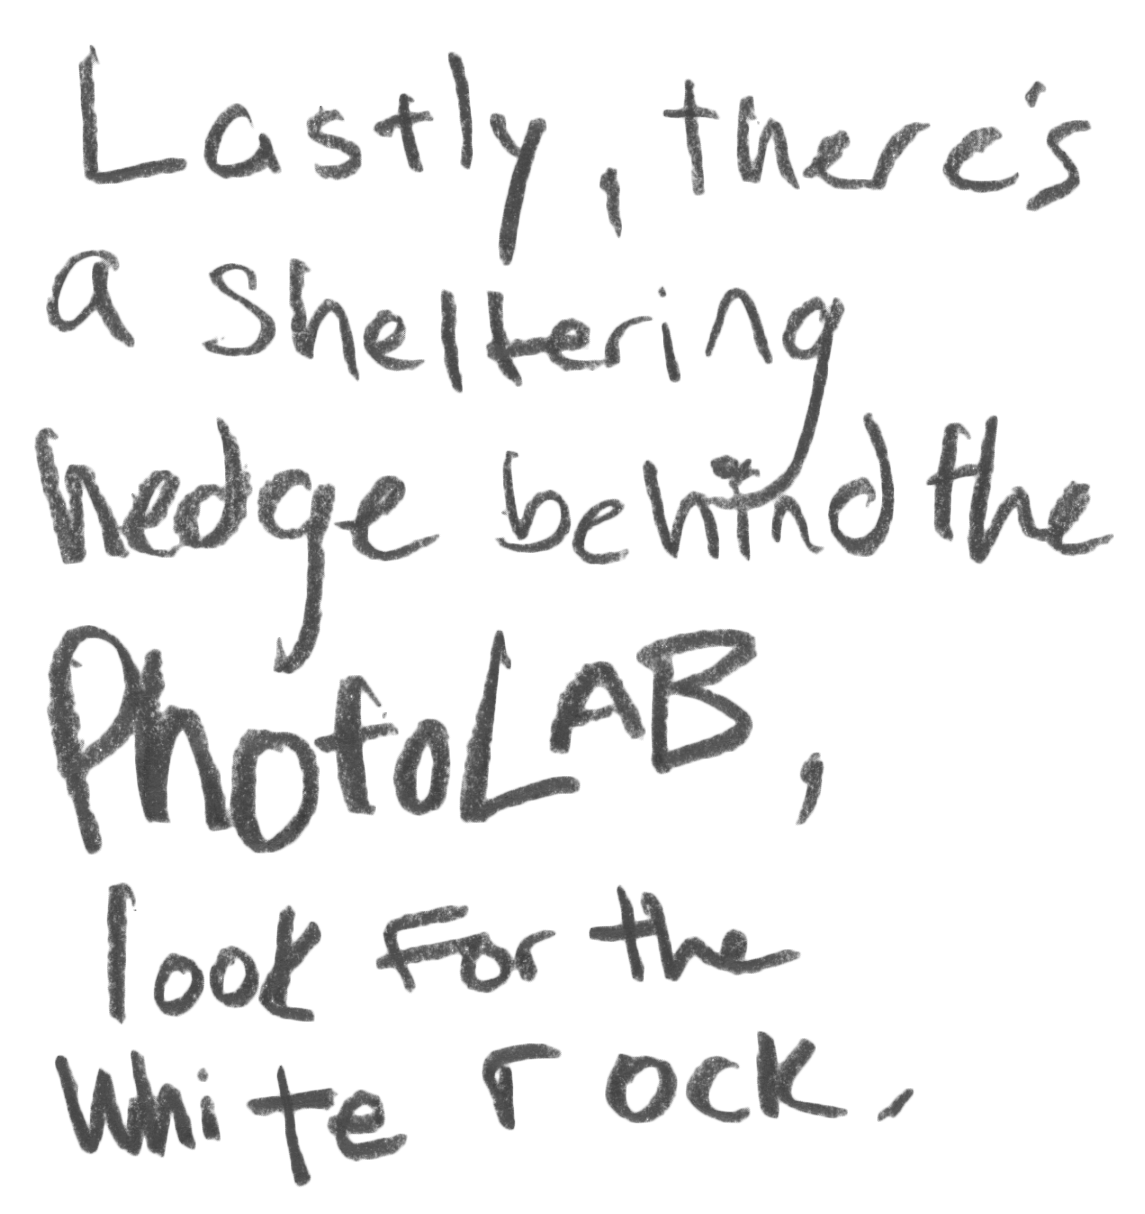 Lastly, there's
a sheltering
hedge behind the
PhotoLAB,
look For the
White rock.